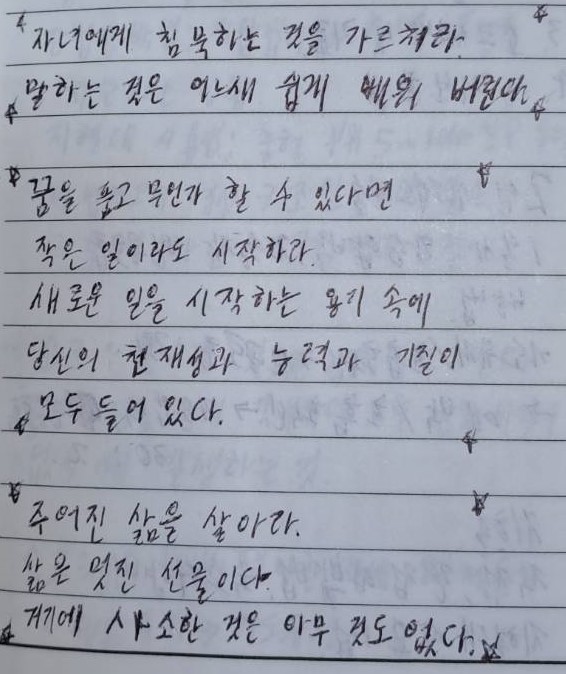 자녀에게 침묵하는 것을 가르쳐라.
말하는 것은 어느새 쉽게 배워 버린다.
꿈을 품고 무언가 할 수 있다면
작은 일이라도 시작하라.
새로운 일을 시작하는 용기 속에
당신의 천재성과 능력과 기질이
모두 들어 있다.
주어진 삶을 살아라.
삶은 멋진 선물이다.
거기에 사소한 것은 아무 것도 없다.